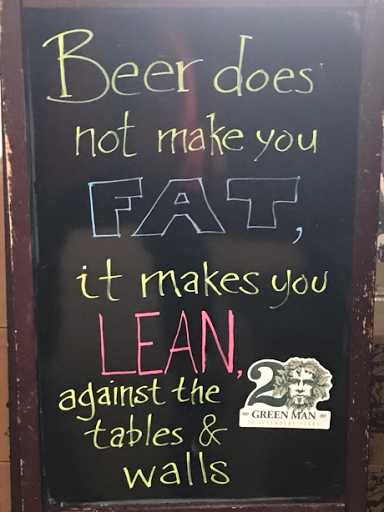 Beer does
not make you
FAT,
it makes you
LEAN,
against the
tables &
walls
20
GREEN MAN
20 LEGENDARY YEARS